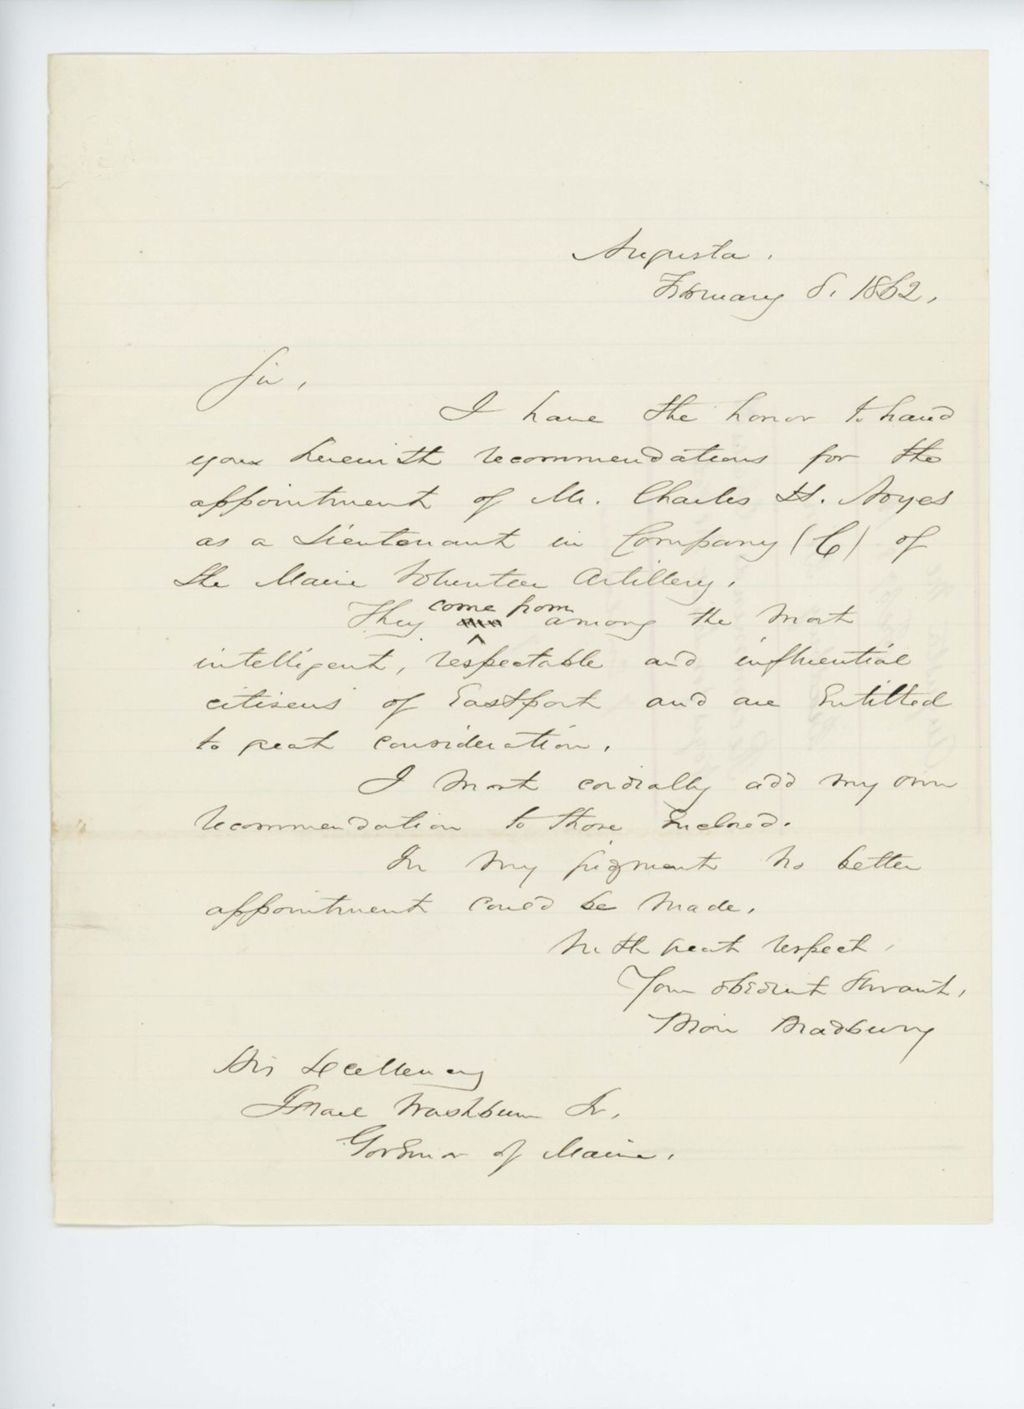 Augusta,
February 8. 1862,
Sir,
I have the honor to hand
you herewith recommendations for the
appointment of Mr. Charles H. Noyes
as a Lieutenant in Company (C) of
the Maine Volunteer Artillery.
They come from among the most
intelligent, respectable and influential
citizens of Eastport and are Entitled
to great consideration.
I most cordially add my own
recommendation to those Enclosed.
In my judgment no better
appointment could be made.
With great respect,
Your obedient Servant,
Bion Bradbury
His Excellency
Israel Washburn Jr.
Governor of Maine.